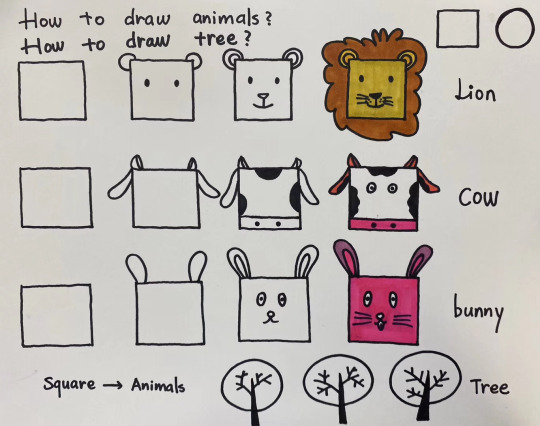 How to draw animals?
How to draw tree?
Lion
Cow
bunny
Square → Animals
Tree